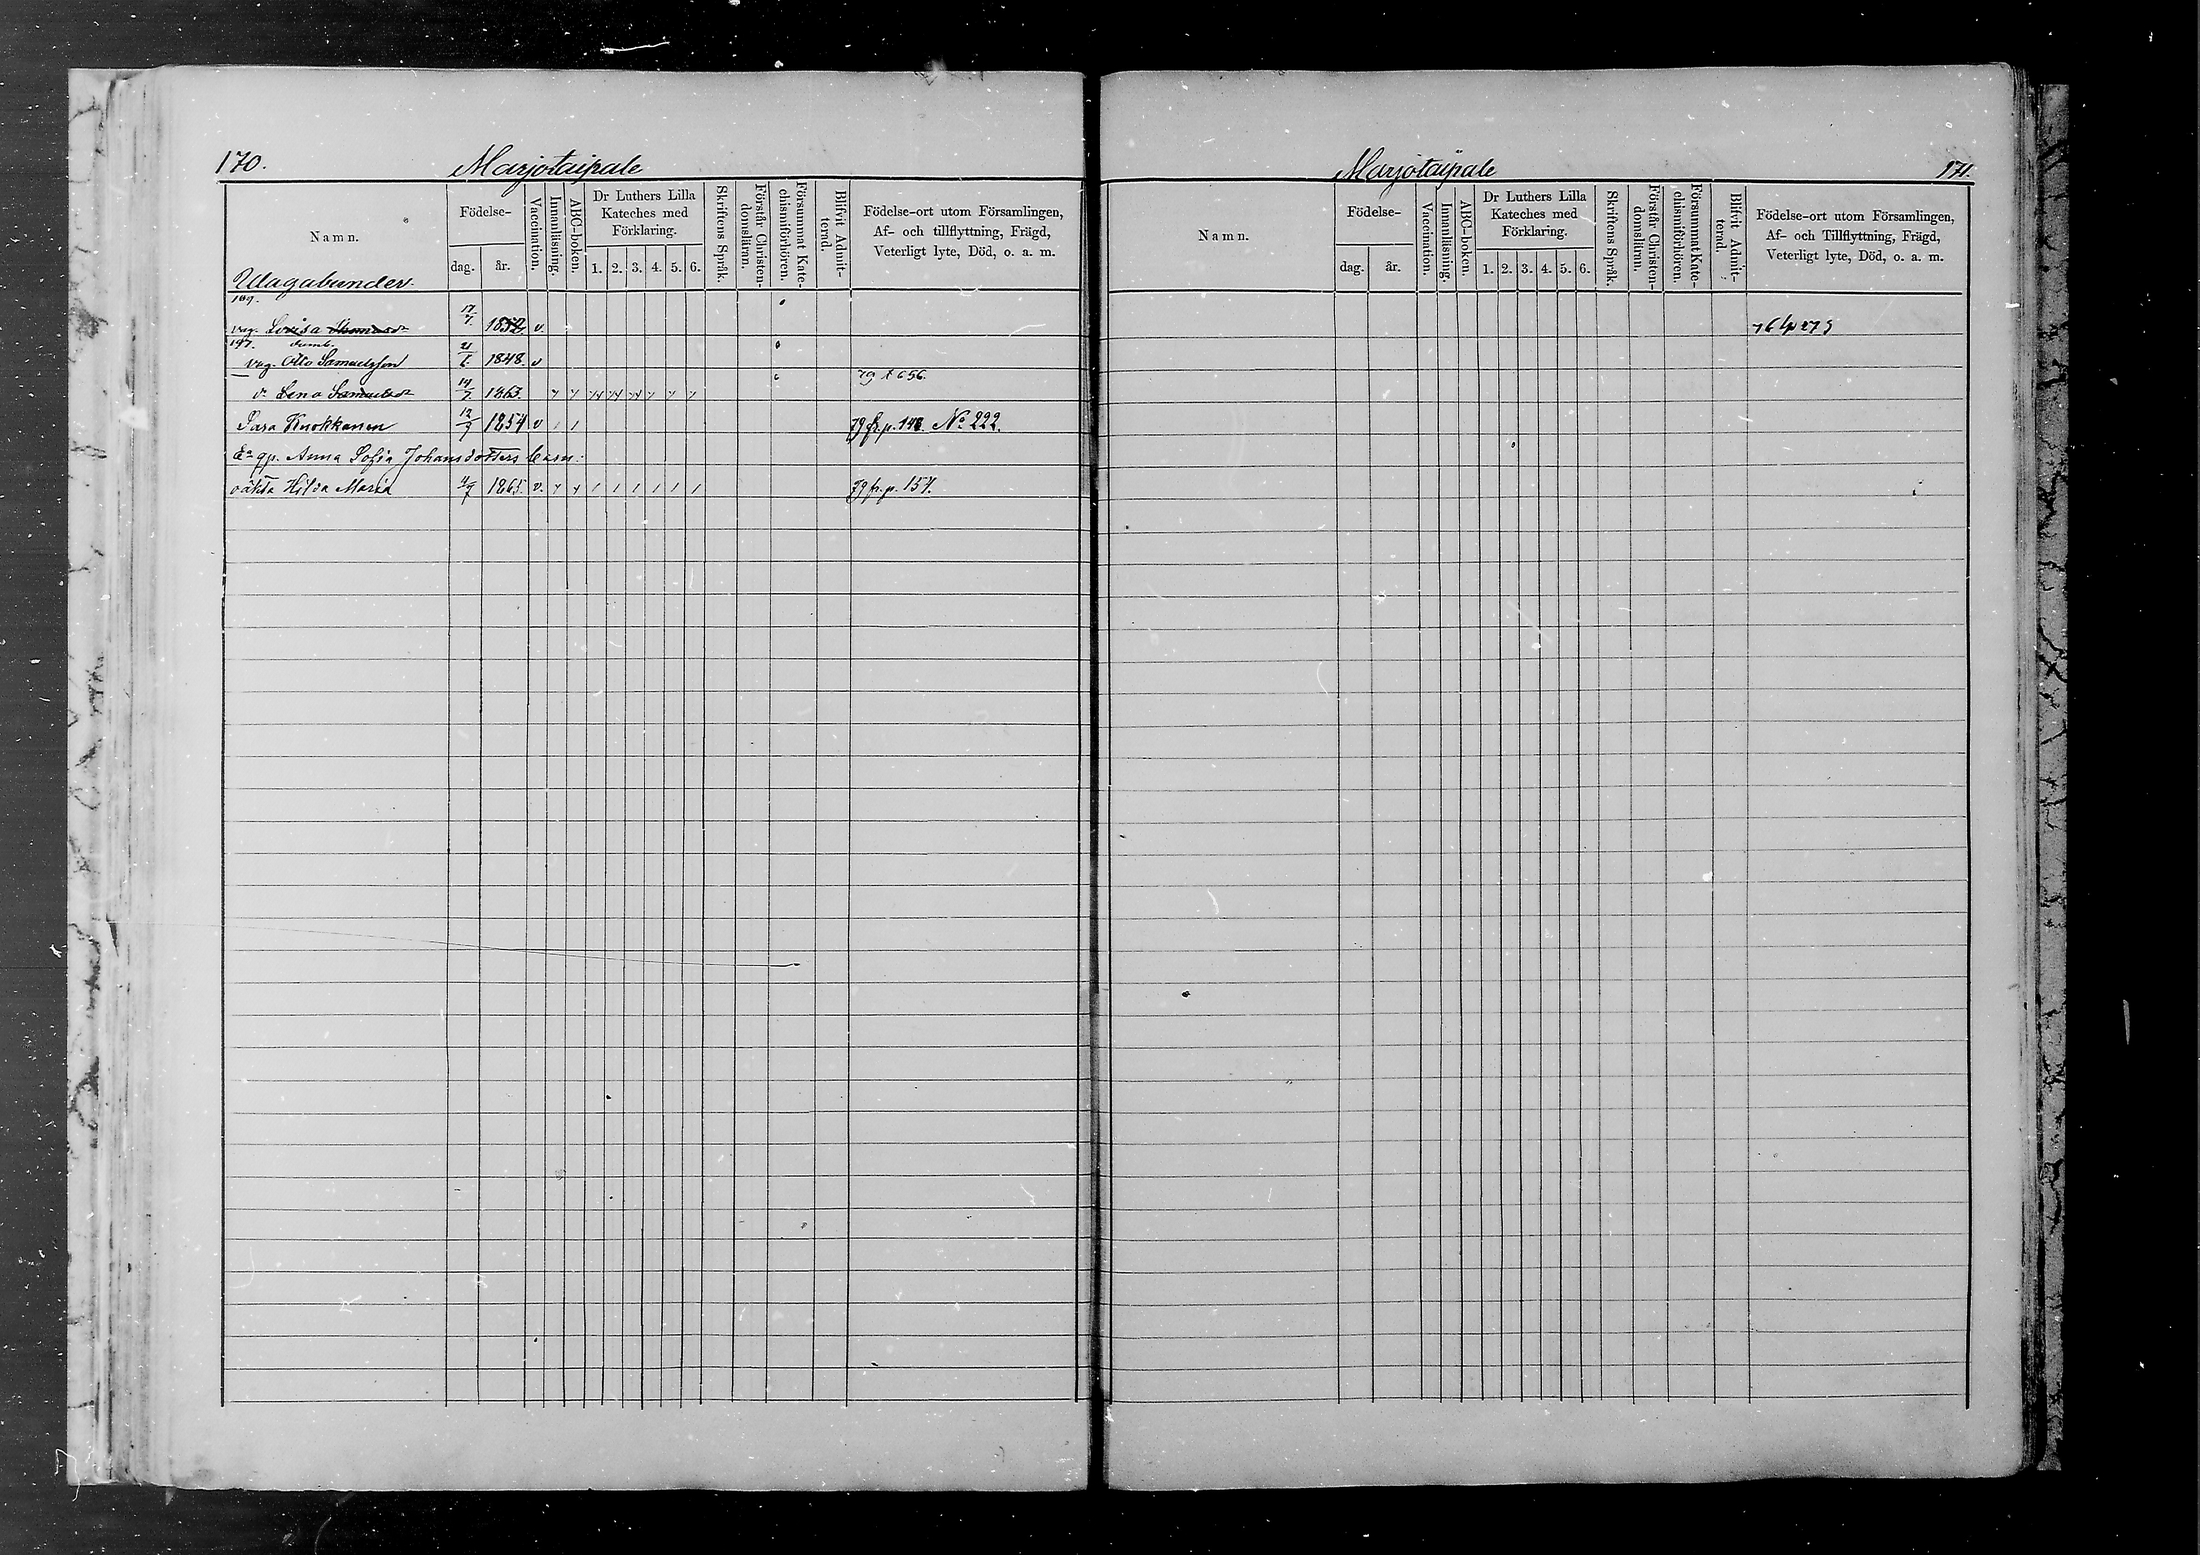 170. Marjotaipale
Namn.
Födelse-
dag. år.
Vaccination.
Innanläsning.
ABC-boken.
Dr Luthers Lilla Kateches med Förklaring.
1. 2. 3. 4. 5. 6.
Skriftens Språk.
Förstår Christendomsläran.
Försummat Katechismiförhören.
Blifvit Admitterad.
Födelse-ort utom Församlingen,
Af- och tillflyttning, Frägd,
Veterligt lyte, Död, o. a. m.
Wagabunder.
169.
vag. Lovisa 17/7. 1852 v.
197. dumb.
vag. Otto Samuelsson 21/6 1848. v
79 t 656.
dr Lena Samuelsdr 19/7 1863.
Sara Kuokkanen 12/9 1854 v 79 fr. p. 148. No 222.
Ea qp. Anna Sofia Johansdotters barn:
oäkta Hilda Maria 4/7 1865. v. 79 fr. p. 157.
Marjotaipale 171.
Namn.
Födelse-
dag. år.
Vaccination.
Innanläsning.
ABC-boken.
Dr Luthers Lilla Kateches med Förklaring.
1. 2. 3. 4. 5. 6.
Skriftens Språk.
Förstår Christendomsläran.
Försummat Katechismiförhören.
Blifvit Admitterad.
Födelse-ort utom Församlingen,
Af- och Tillflyttning, Frägd,
Veterligt lyte, Död, o. a. m.